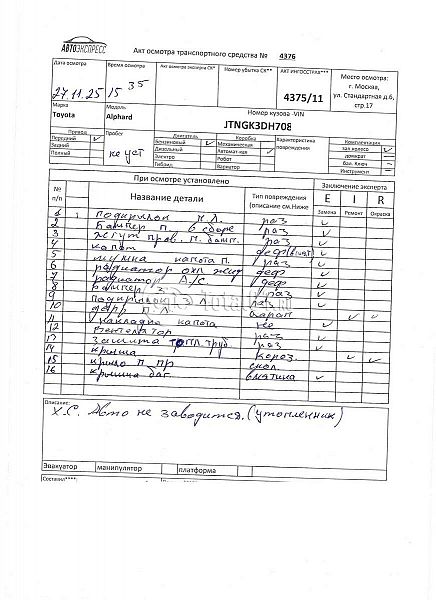 АВТОЭКСПРЕСС
Акт осмотра транспортного средства № 4376
Дата осмотра Время осмотра Акт осмотра эксперта СК** Номер убытка СК** АКТ ИНГОССТРАХ*** Место осмотра:
г. Москва,
ул. Стандартная д.6,
стр.17
27.11.25 15 35 4375/11
Марка Модель Номер кузова -VIN
Toyota Alphard JTNGK3DH708
Привод Пробег Двигатель Коробка Характеристика повреждения Комплектация
Передний Бензиновый ✓ Механическая зап.колесо ✓
Задний не уст Дизельный Автоматная ✓ домкрат –
Полный Электро Робот бал. Ключ –
Гибрид. Вариатор Инструмент –
При осмотре установлено Заключение эксперта
№ п/п Название детали Тип повреждения (описание см.Ниже E I R
Замена Ремонт Окраска
1 Подкрылок П.Л. раз ✓
2 Бампер П. в сборе раз ✓
3 Жгут пров. П. бамп. раз ✓
4 капот деф ✓
5 петля капота П. раз ✓
6 радиатор охл жид деф ✓
7 радиатор А/С. деф ✓
8 Бампер З раз ✓
9 Подкрылок Л раз ✓
10 П Л царап ✓ ✓
11 накладка капота не ✓
12 Вентилятор
13 защита топл. труб раз ✓
14 крыша короз. ✓ ✓
15 крыло П пр скол ✓
16 крышка баг. вмятина ✓
Описание:
Х.С. Авто не заводится. (утопленник)
Эвакуатор манипулятор платформа
Составил****: